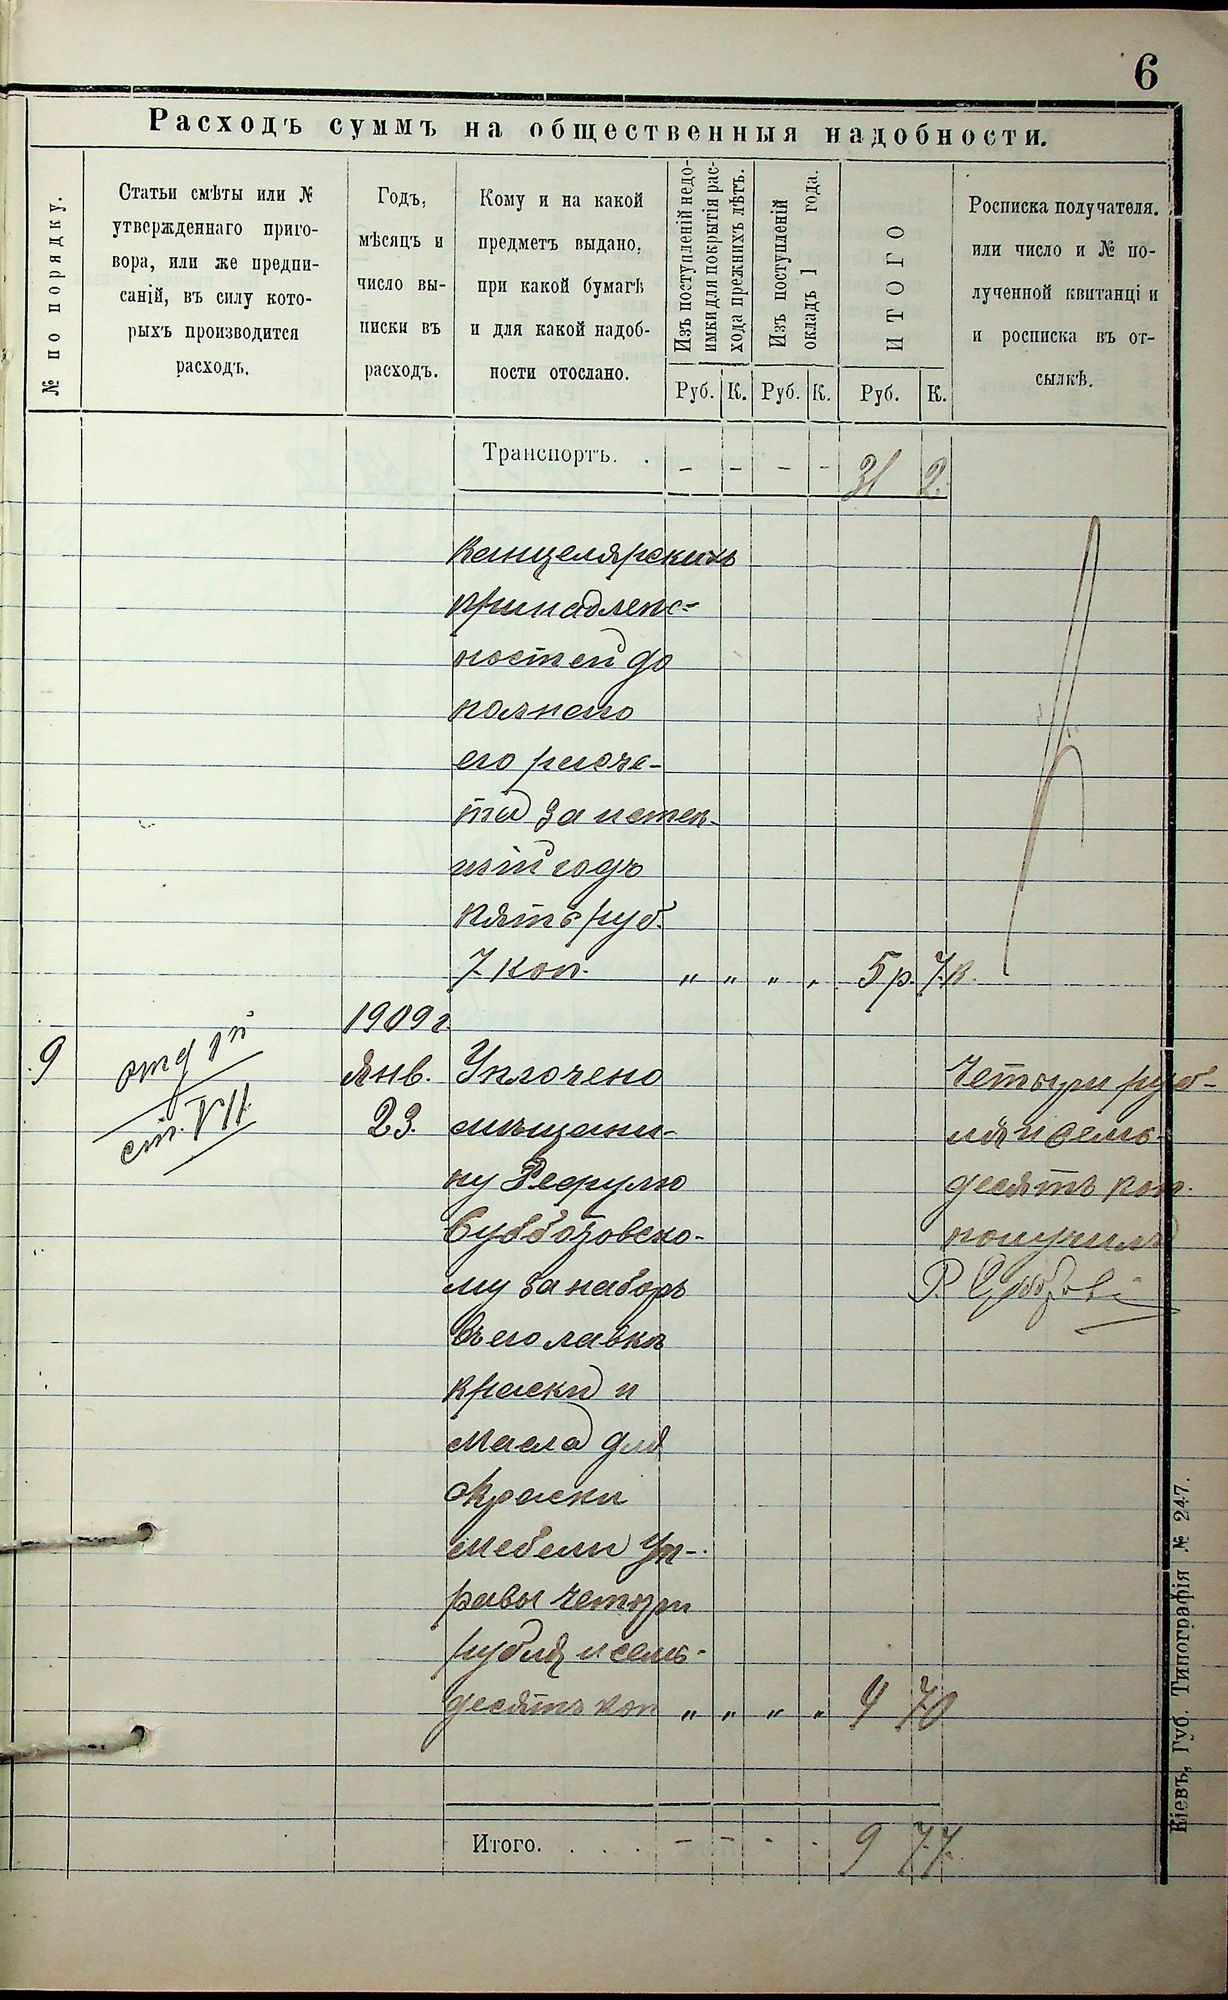 6
Расходъ суммъ на общественныя надобности.
№ по порядку.
Статьи смѣты или №
утвержденнаго приго-
вора, или же предпи-
саній, въ силу кото-
рыхъ производится
расходъ.
Годъ,
мѣсяцъ и
число вы-
писки въ
расходъ.
Кому и на какой
предметъ выдано,
при какой бумагѣ
и для какой надоб-
ности отослано.
Изъ поступленій недо-
имки для покрытія рас-
хода прежнихъ лѣтъ.
Изъ поступленій
окладъ 1 года.
ИТОГО
Росписка получателя.
или число и № по-
лученной квитанці и
и росписка въ от-
сылкѣ.
Руб. К. Руб. К. Руб. К.
Транспортъ. . – – – – 31 2.
Канцелярскихъ
принадлеж-
ностей до
полнаго
его расче-
та за истек-
шій годъ
пять руб.
7 коп. „ „ „ „ 5 р. 7 к.
1909 г.
9 отд. Янв. Уплочено Четыри руб-
ст. VII. 23. мѣщани- ля и семь-
ну Рефулю десятъ коп.
Субботовско- получилъ
му за наборъ Р
въ его лавкѣ
краски и
масла для
окраски
мебели Уп-
равы четыри
рубля и семь-
десятъ коп „ „ „ „ 4 70
Итого. . . . . – – - . 9 77.
Кіевъ, Губ. Типографія № 247.